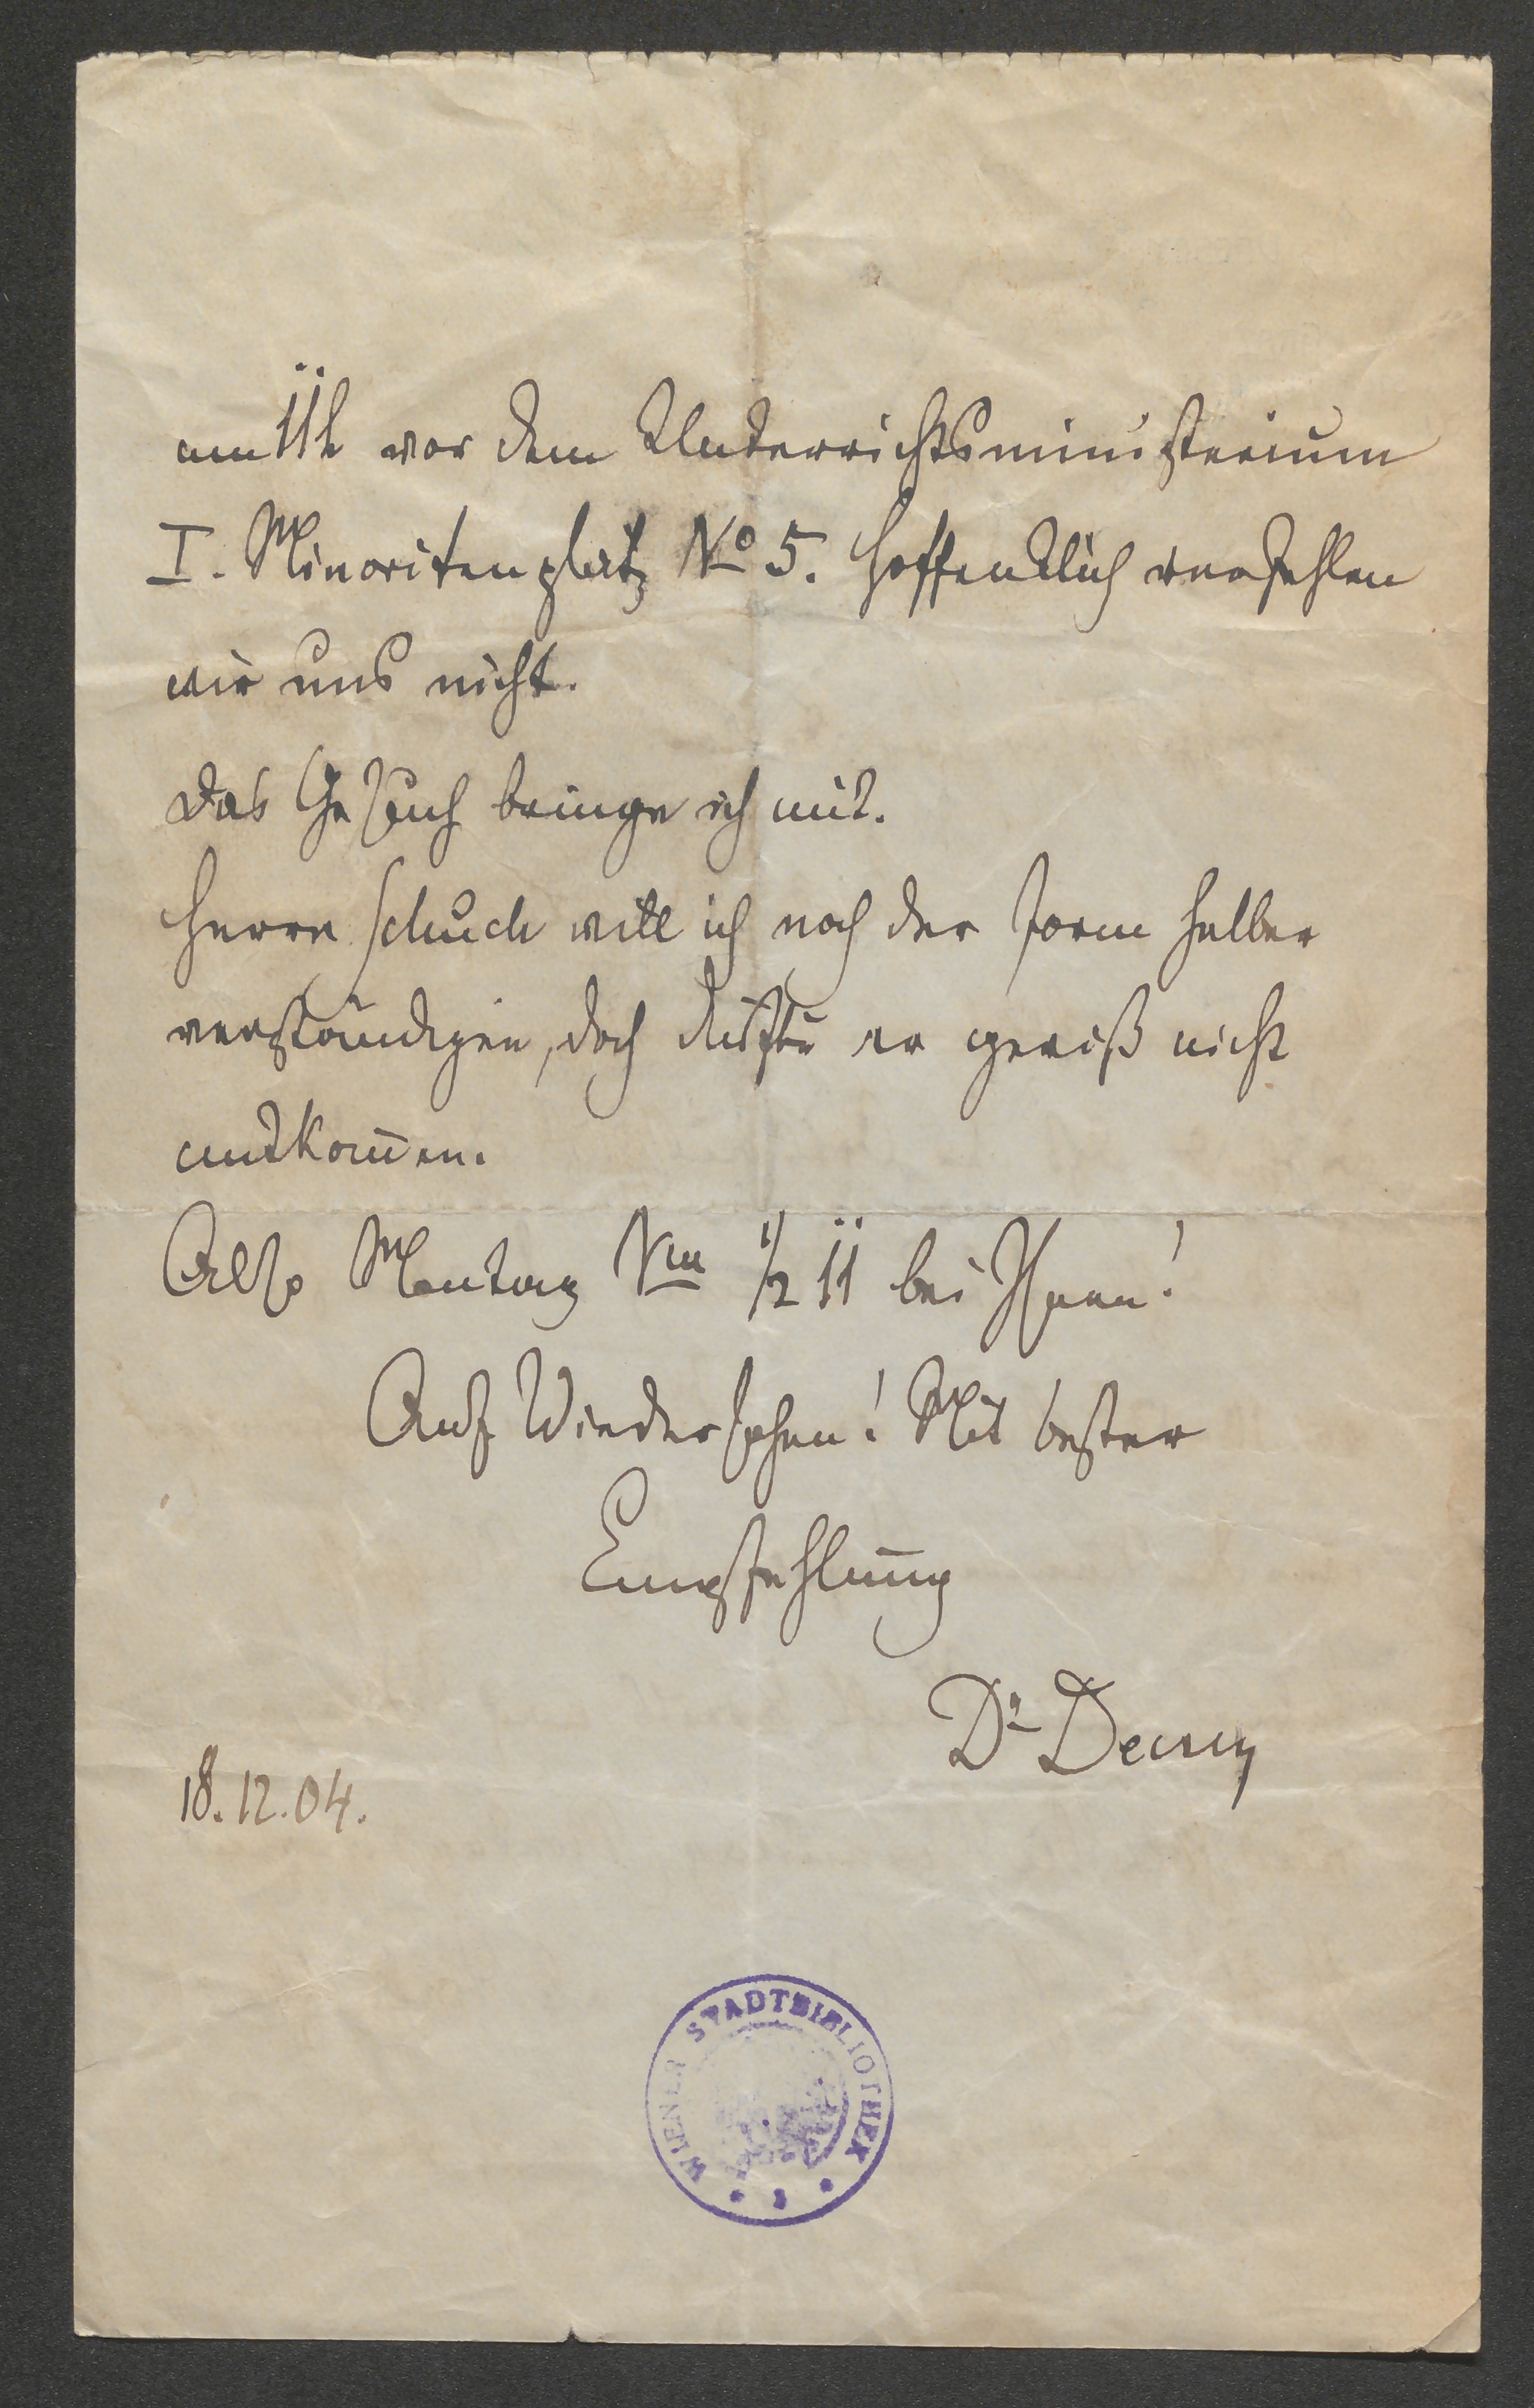 um 11h vor dem Unterrichtsministerium
I. Minoritenplatz No 5. Hoffentlich verfehlen
wir uns nicht.
Das Gesuch bringe ich mit.
Herrn Schuch will ich noch der Form halber
verständigen, doch dürfte er gewiß nicht
mitkom̅en.
Also Montag Vm 1/2 11 bei Ihnen!
Auf Wiedersehen! Mit bester
Empfehlung
Dr Decsey
18.12.04.
WIENER STADTBIBLIOTHEK